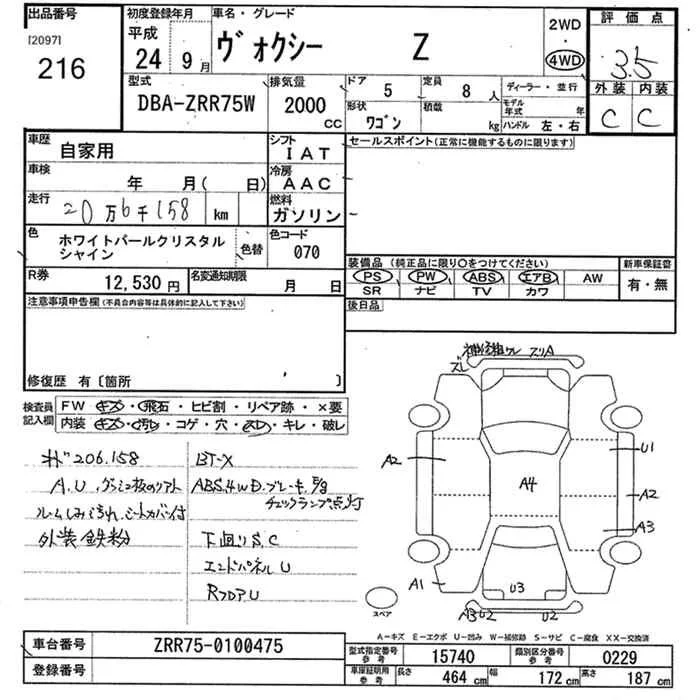 出品番号
[2097]
216
初度登録年月
平成
24 9月
車名・グレード
ヴォクシー Z
2WD
・
4WD
評価点
3.5
外装 内装
C C
型式
DBA-ZRR75W
排気量
2000
CC
ドア
5
定員
8人
ディーラー・並行
形状
ワゴン
積載
kg
モデル年式
年
ハンドル 左・右
車歴
自家用
シフト
IAT
車検
年 月( 日)
冷房
AAC
走行
20万6千158 km
燃料
ガソリン
色
ホワイトパールクリスタル
シャイン
色替
色コード
070
R券
12,530円
名変通知期限
月 日
セールスポイント(正常に機能するものに限ります)
装備品(純正品に限り○をつけてください)
PS PW ABS エアB AW
SR ナビ TV カワ
新車保証書
有・無
後日品
注意事項申告欄(不具合内容等は具体的に記入して下さい)
修復歴 有〔箇所 〕
検査員
記入欄
FW キズ・飛石・ヒビ割・リペア跡・×要
内装 キズ・汚れ・コゲ・穴・スレ・キレ・破レ
206.158
A.U
ルームしみ汚れ、シートカバー付
外装鉄粉
BT-X
ABS,4WD,ブレーキ,
チェックランプ点灯
下回りS,C
エンドパネルU
RフロアU
ズレ
スリA
U1
A2
A4
A2
A3
A1
U3
A3U2
U2
スペア
A−キズ E−エクボ U−凹み W−補修跡 S−サビ C−腐食 XX−交換済
車台番号
ZRR75-0100475
登録番号
型式指定番号
参考
15740
類別区分番号
参考
0229
車庫証明用
参考
長さ
464 cm
幅
172 cm
高さ
187 cm